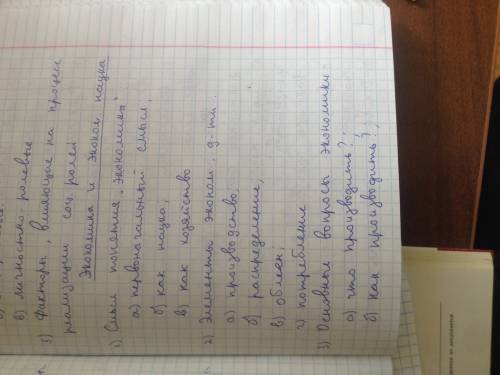 в) личностно-ролевые
3) Факторы, влияющие на процесс
реализации соц. ролей
Экономика и эконом. наука
1) Смысл понятия "экономика"
а) первоначальный смысл,
б) как наука,
в) как хозяйство
2) Элементы эконом. д-ти.
а) производство,
б) распределение,
в) обмен,
г) потребление
3) Основные вопросы экономики.
а) что производить?,
б) как производить?,